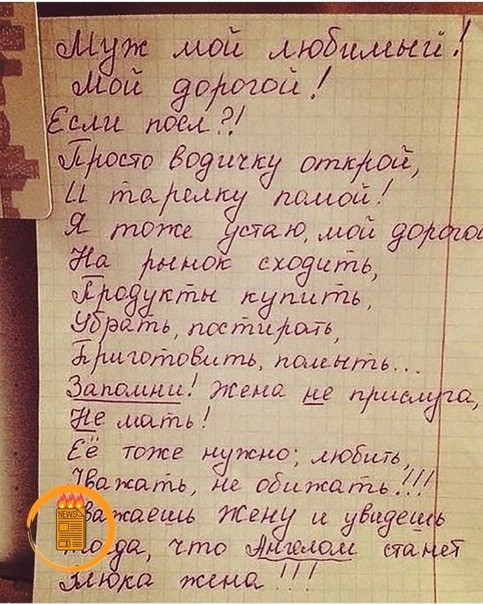 Муж мой любимый!
Мой дорогой!
Если поел?!
Просто водичку открой,
И тарелку помой!
Я тоже устаю, мой дорогой
На рынок сходить,
Продукты купить,
Убрать, постирать,
Приготовить, помыть...
Запомни! Жена не прислуга,
Не мать!
Её тоже нужно; любить,
Уважать, не обижать!!!
важаешь Жену и увидешь
огда, что Ангелом станет
жена!!!
NEWS